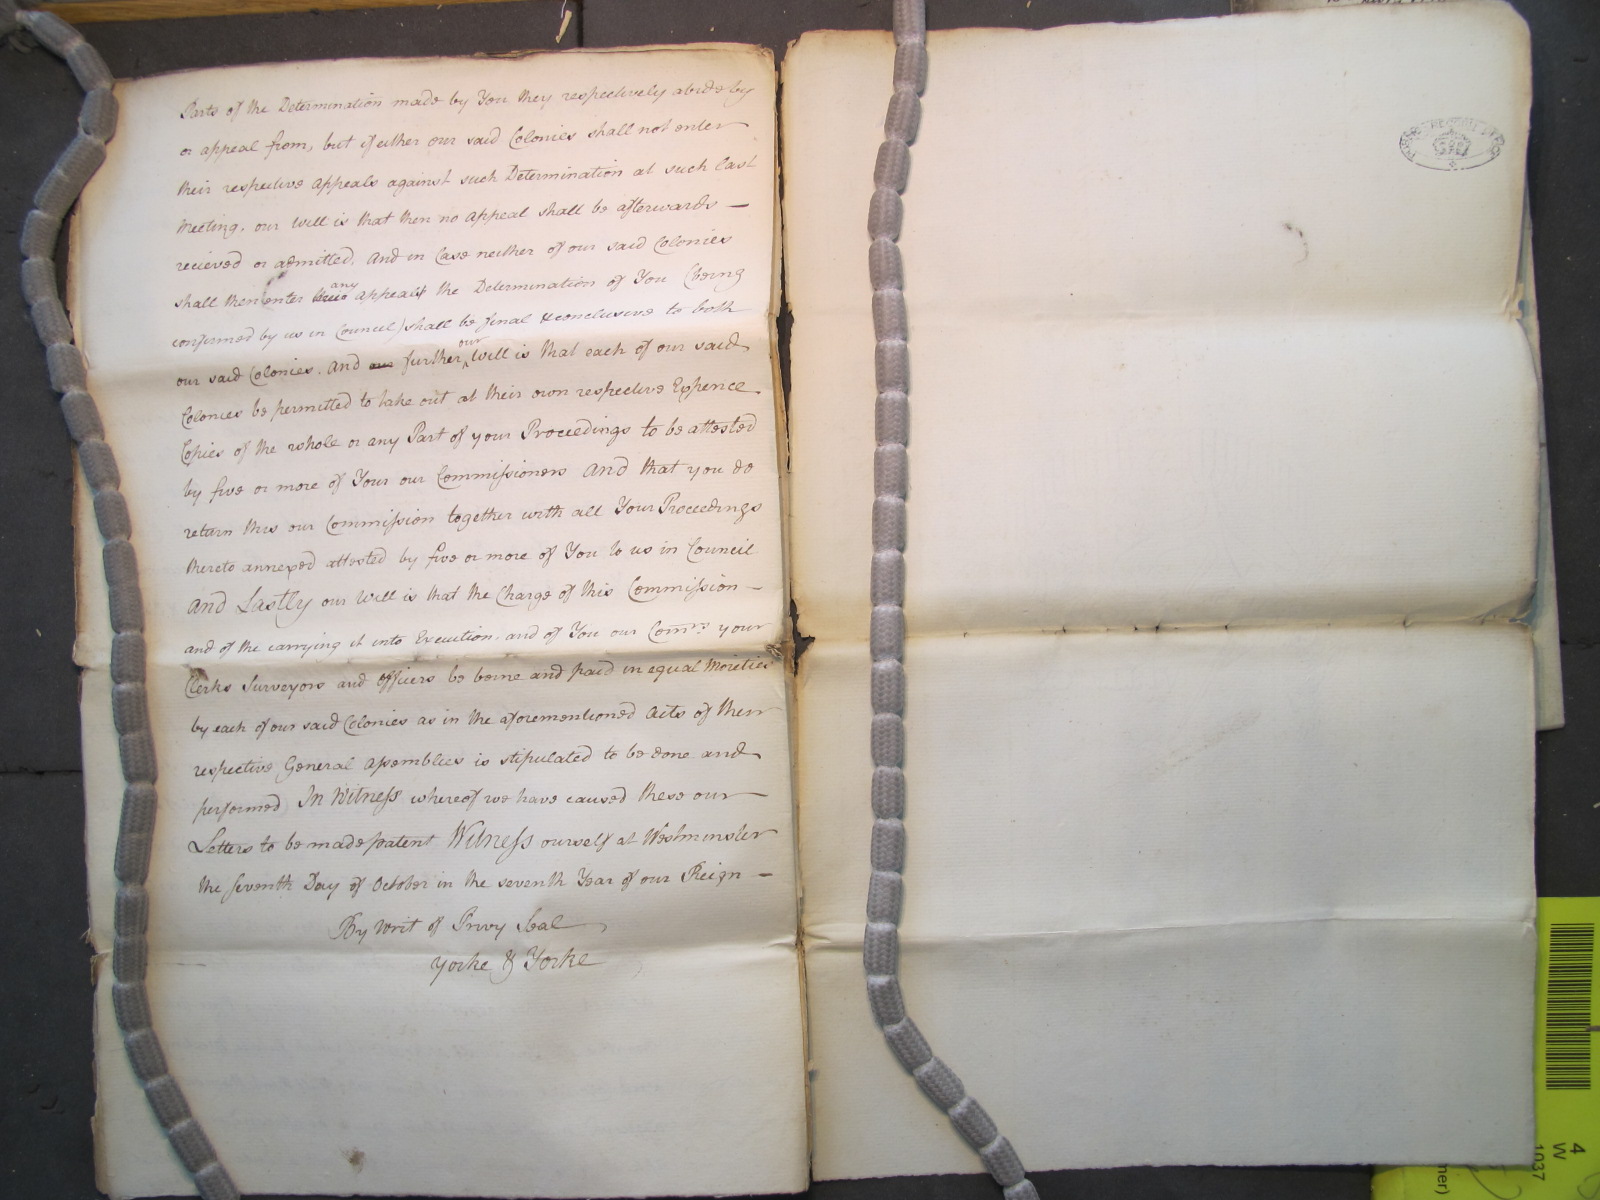 Parts of the Determination made by You they respectively abide by
or appeal from, but if either our said Colonies shall not enter
their respective Appeals against such Determination at such last
Meeting, our Will is that then no Appeal shall be afterwards —
recieved or admitted. And in Case neither of our said Colonies
shall then enter any appeal the Determination of You (being
confirmed by us in Council) shall be final & conclusive to both
our said Colonies. And our further our Will is that each of our said
Colonies be permitted to take out at their own respective Expence
Copies of the whole or any Part of your Proceedings to be attested
by five or more of Your our Commissioners And that you do
return this our Commission together with all Your Proceedings
thereto annexed attested by five or more of You to us in Council
And Lastly our Will is that the Charge of this Commission —
and of the carrying it into Execution, and of You our Comrs. your
Clerks Surveyors and Officers be borne and paid in equal Moieties
by each of our said Colonies as in the aforementioned Acts of their
respective General Assemblies is stipulated to be done and
performed In Witness whereof we have caused these our —
Letters to be made patent Witness ourself at Westminster
the seventh Day of October in the seventh Year of our Reign —
By Writ of Privy Seal
Yorke & Yorke
4
W
1037